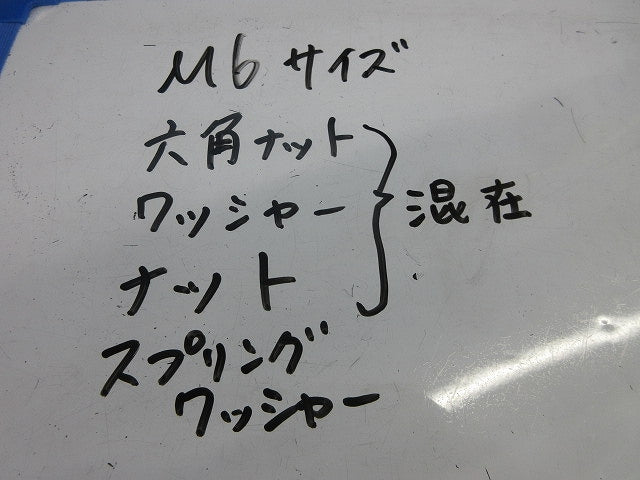 M6 サイズ
六角ナット
ワッシャー
ナット
混在
スプリング
ワッシャー